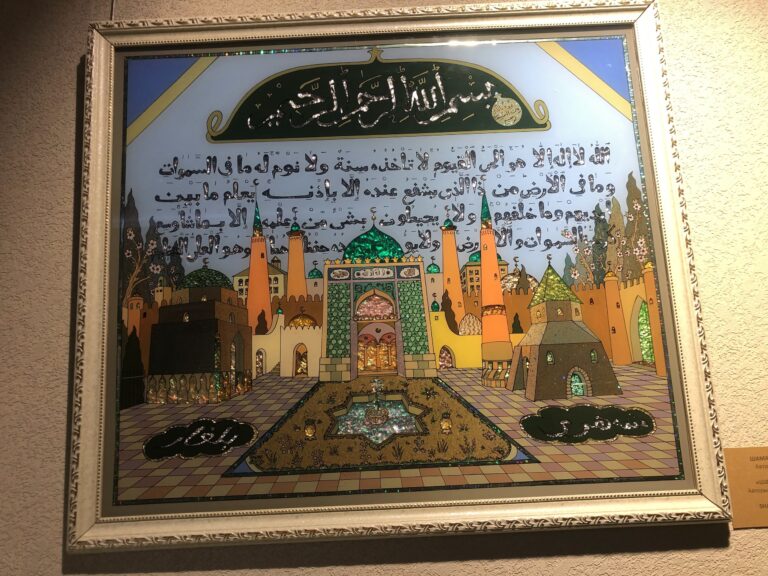 بسم الله الرحمن الرحيم
الله لا اله الا هو الحي القيوم لا تأخذه سنة ولا نوم له ما في السموات
وما في الارض من ذا الذي يشفع عنده الا باذنه يعلم ما بين
ايديهم وما خلفهم ولا يحيطون بشئ من علمه الا بما شاء وسع
السموات والارض ولا وهو العلي
بلغار